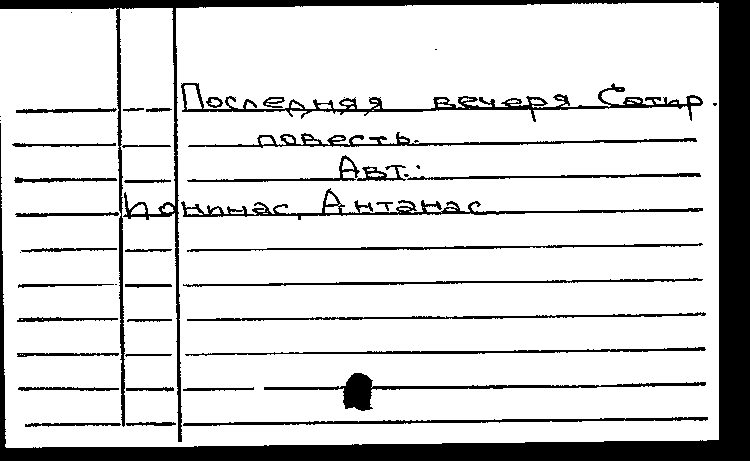 Последняя вечеря Сатир.
повесть.
Авт.:
Йонинас, Антанас